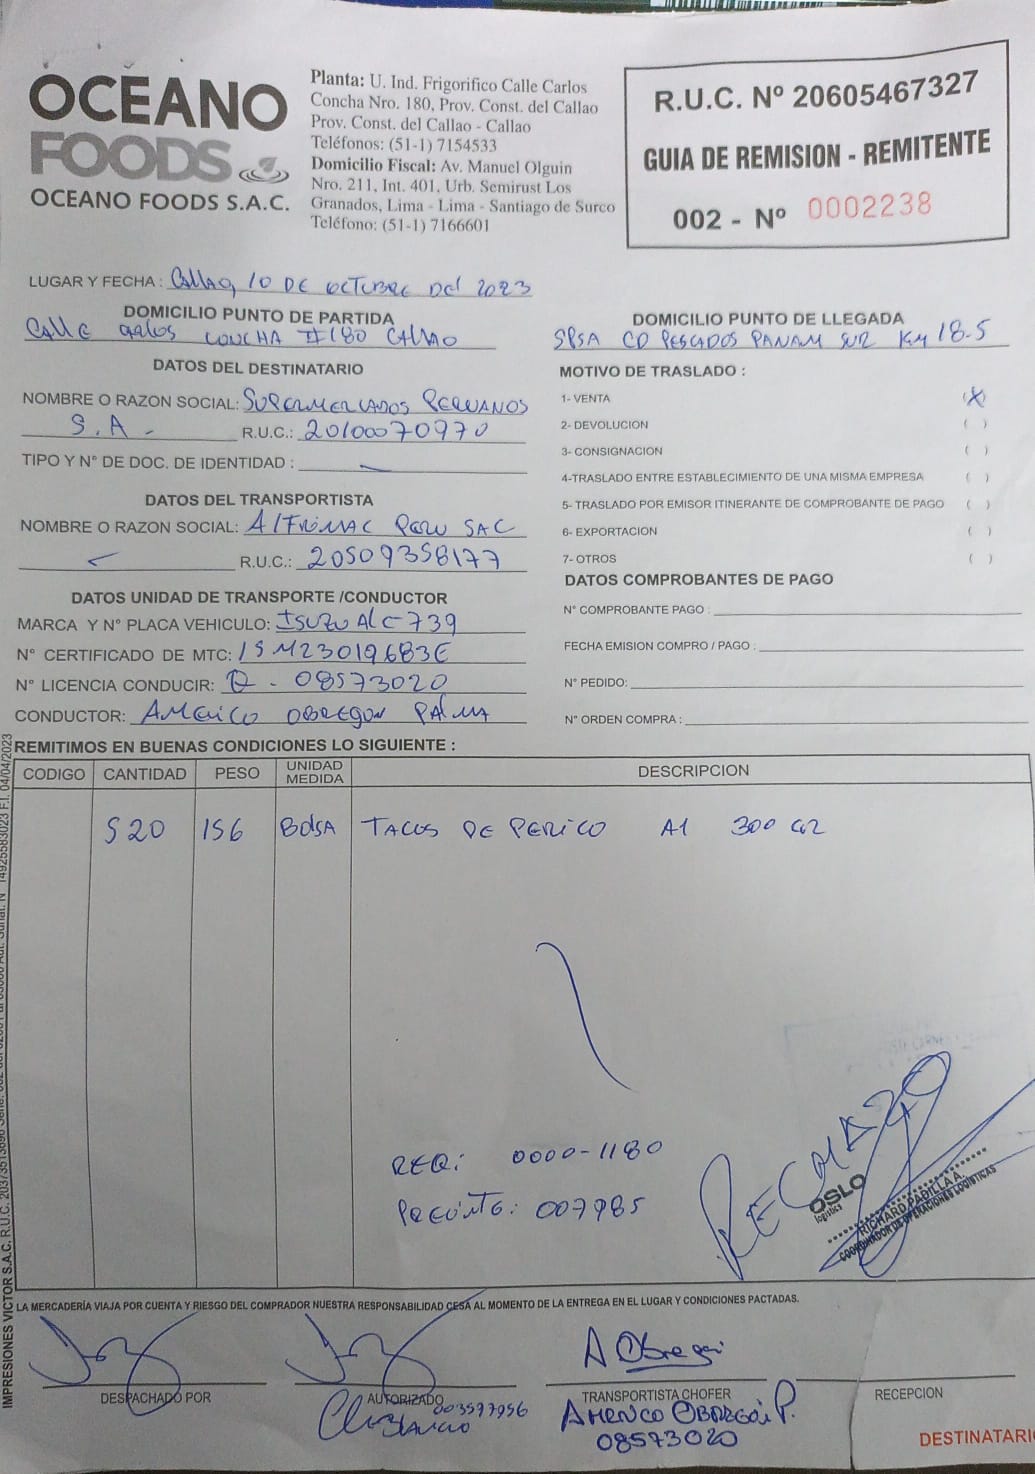 OCEANO
FOODS
OCEANO FOODS S.A.C.
Planta: U. Ind. Frigorifico Calle Carlos
Concha Nro. 180, Prov. Const. del Callao
Prov. Const. del Callao - Callao
Teléfonos: (51-1) 7154533
Domicilio Fiscal: Av. Manuel Olguin
Nro. 211, Int. 401, Urb. Semirust Los
Granados, Lima - Lima - Santiago de Surco
Teléfono: (51-1) 7166601
R.U.C. Nº 20605467327
GUIA DE REMISION - REMITENTE
002 - Nº 0002238
LUGAR Y FECHA : Callao, 10 DE OCTUBRE DEL 2023
DOMICILIO PUNTO DE PARTIDA
CALLE Carlos CONCHA #180 CALLAO
DOMICILIO PUNTO DE LLEGADA
SPSA CD PESCADOS PANAM SUR KM 18.5
DATOS DEL DESTINATARIO
NOMBRE O RAZON SOCIAL: SUPERMERCADOS PERUANOS
S.A. R.U.C.: 20100070970
TIPO Y Nº DE DOC. DE IDENTIDAD :
MOTIVO DE TRASLADO :
1- VENTA (X)
2- DEVOLUCION ( )
3- CONSIGNACION ( )
4-TRASLADO ENTRE ESTABLECIMIENTO DE UNA MISMA EMPRESA ( )
5- TRASLADO POR EMISOR ITINERANTE DE COMPROBANTE DE PAGO ( )
6- EXPORTACION ( )
7- OTROS ( )
DATOS DEL TRANSPORTISTA
NOMBRE O RAZON SOCIAL: ALFRIMAC PERU SAC
R.U.C.: 20509358177
DATOS UNIDAD DE TRANSPORTE /CONDUCTOR
MARCA Y Nº PLACA VEHICULO: ISUZU ALC-739
Nº CERTIFICADO DE MTC: 15M23019683E
Nº LICENCIA CONDUCIR: Q - 08573020
CONDUCTOR: AMERICO OBREGON PALMA
DATOS COMPROBANTES DE PAGO
Nº COMPROBANTE PAGO :
FECHA EMISION COMPRO / PAGO :
Nº PEDIDO:
Nº ORDEN COMPRA :
REMITIMOS EN BUENAS CONDICIONES LO SIGUIENTE :
CODIGO CANTIDAD PESO UNIDAD MEDIDA DESCRIPCION
520 156 BOLSA TACOS DE PERICO A1 300 GR
REQ: 0000-1180
PRECINTO: 007985
RECHAZO
OSLO
logistics
RICHARD PADILLA A.
COORDINADOR DE OPERACIONES LOGISTICAS
LA MERCADERÍA VIAJA POR CUENTA Y RIESGO DEL COMPRADOR NUESTRA RESPONSABILIDAD CESA AL MOMENTO DE LA ENTREGA EN EL LUGAR Y CONDICIONES PACTADAS.
A Obregon
DESPACHADO POR
AUTORIZADO
003597956
TRANSPORTISTA CHOFER
AMERICO OBREGON P.
08573020
RECEPCION
DESTINATARIO